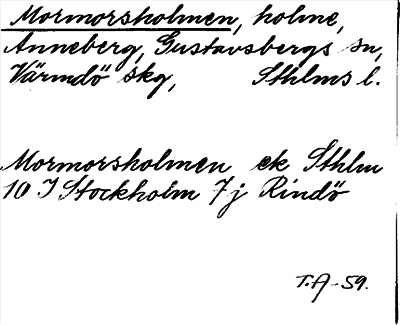 Mormorsholmen, holme,
Anneberg, Gustavsbergs sn,
Värmdö skg, Sthlms l.
Mormorsholmen ek Sthlm
10 I Stockholm 7j Rindö
T.A -59.